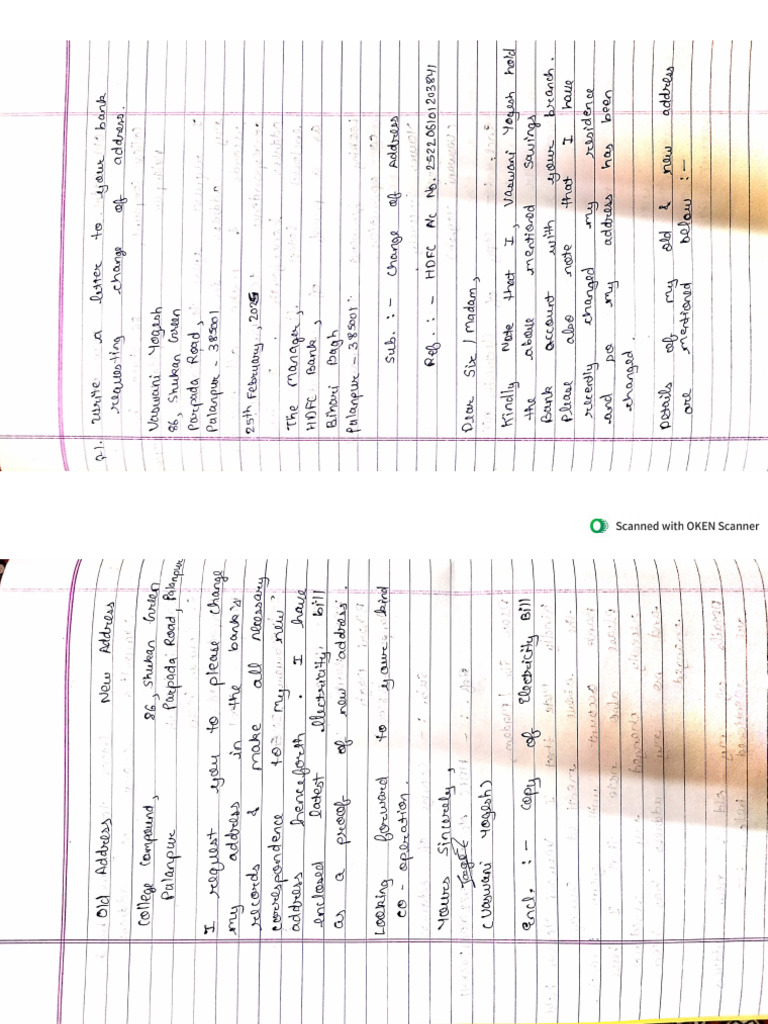 Q1. Write a letter to your bank
requesting change of address.
Vaswani Yogesh
86, Shukan Green
Parpada Road,
Palanpur - 385001
25th February, 2025
The Manager,
HDFC Bank,
Bihari Bagh
Palanpur - 385001
Sub. :- Change of Address
Ref. :- HDFC A/c No. 25220610 1203841
Dear Sir / Madam,
Kindly Note that I, Vaswani Yogesh hold
the above mentioned savings
Bank account with your branch.
Please also note that I have
recently changed my residence
and so my address has been
changed.
Details of my old & new address
are mentioned below :-
Scanned with OKEN Scanner
Old Address New Address
College Compound, 86, Shukan Green
Palanpur Parpada Road, Palanpur
I request you to please change
my address in the bank's
records & make all necessary
correspondence to my new
address henceforth. I have
enclosed latest electricity bill
as a proof of new address.
Looking forward to your kind
co-operation.
Yours Sincerely,
(Vaswani Yogesh)
Encl. :- Copy of Electricity Bill